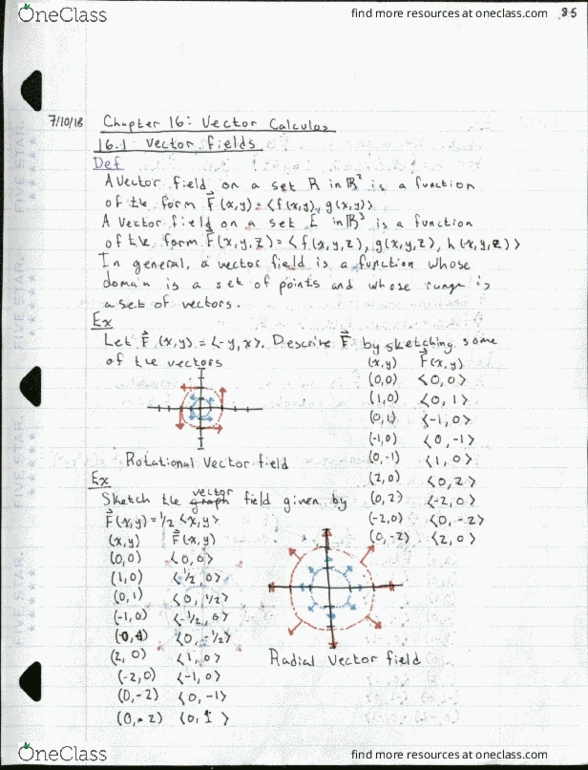 OneClass
find more resources at oneclass.com
85
7/10/18 Chapter 16: Vector Calculus
16.1 Vector fields
Def
A vector field on a set R in ℝ² is a function
of the form F⃗(x,y) = <f(x,y), g(x,y)>
A vector field on a set E in ℝ³ is a function
of the form F⃗(x,y,z) = <f(x,y,z), g(x,y,z), h(x,y,z)>
In general, a vector field is a function whose
domain is a set of points and whose range is
a set of vectors.
Ex
Let F⃗(x,y) = <-y, x>. Describe F⃗ by sketching some
of the vectors
(x,y) F⃗(x,y)
(0,0) <0,0>
(1,0) <0,1>
(0,1) <-1,0>
(-1,0) <0,-1>
(0,-1) <1,0>
(2,0) <0,2>
(0,2) <-2,0>
(-2,0) <0,-2>
(0,-2) <2,0>
Rotational Vector field
Ex
Sketch the vector field given by
F⃗(x,y) = 1/2 <x,y>
(x,y) F⃗(x,y)
(0,0) <0,0>
(1,0) <1/2, 0>
(0,1) <0, 1/2>
(-1,0) <-1/2, 0>
<0, -1/2>
(2,0) <1,0>
(-2,0) <-1,0>
(0,-2) <0,-1>
Radial Vector field
OneClass
find more resources at oneclass.com
FIVE STAR.
FIVE STAR.
FIVE STAR.
FIVE STAR.